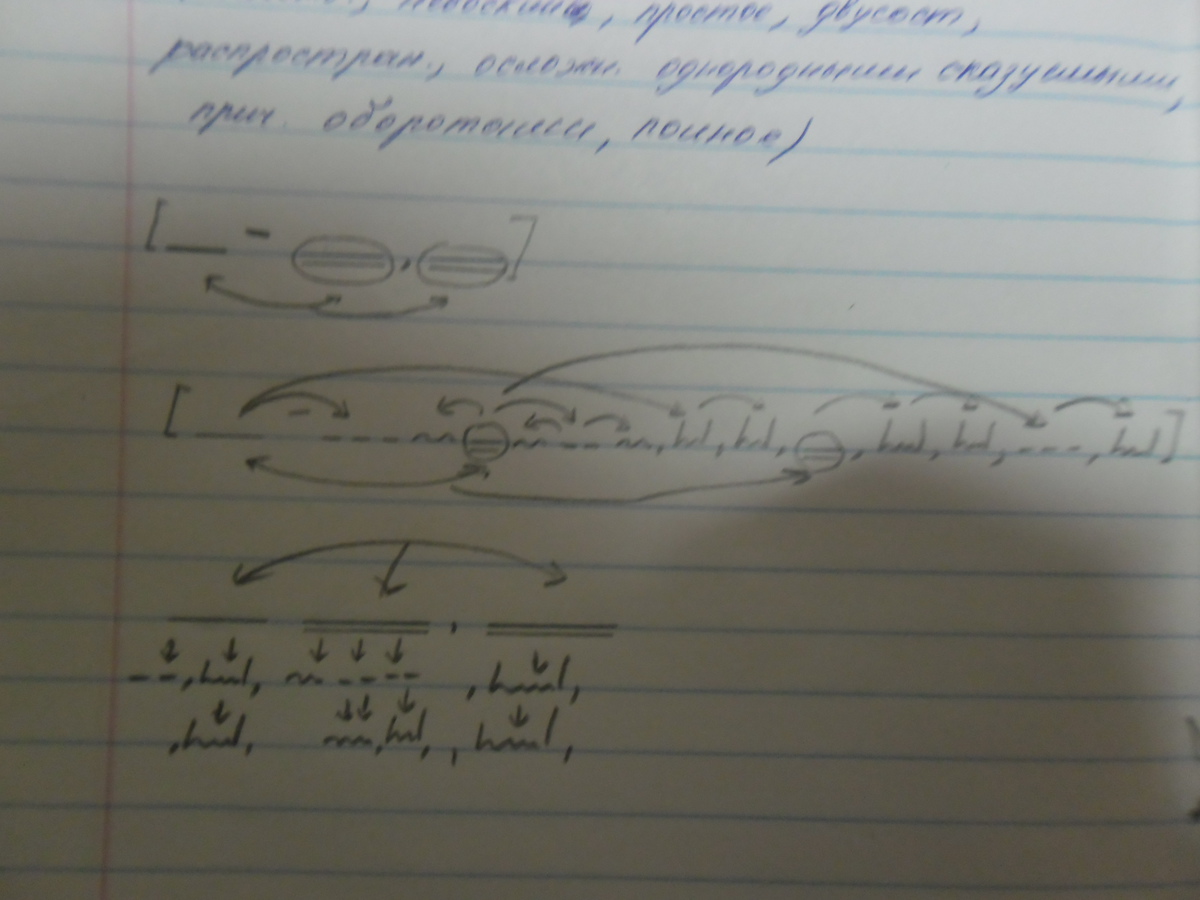 невосклиц, простое, двусост,
распростран., осложн. однородными сказуемыми,
прич. оборотами, полное)